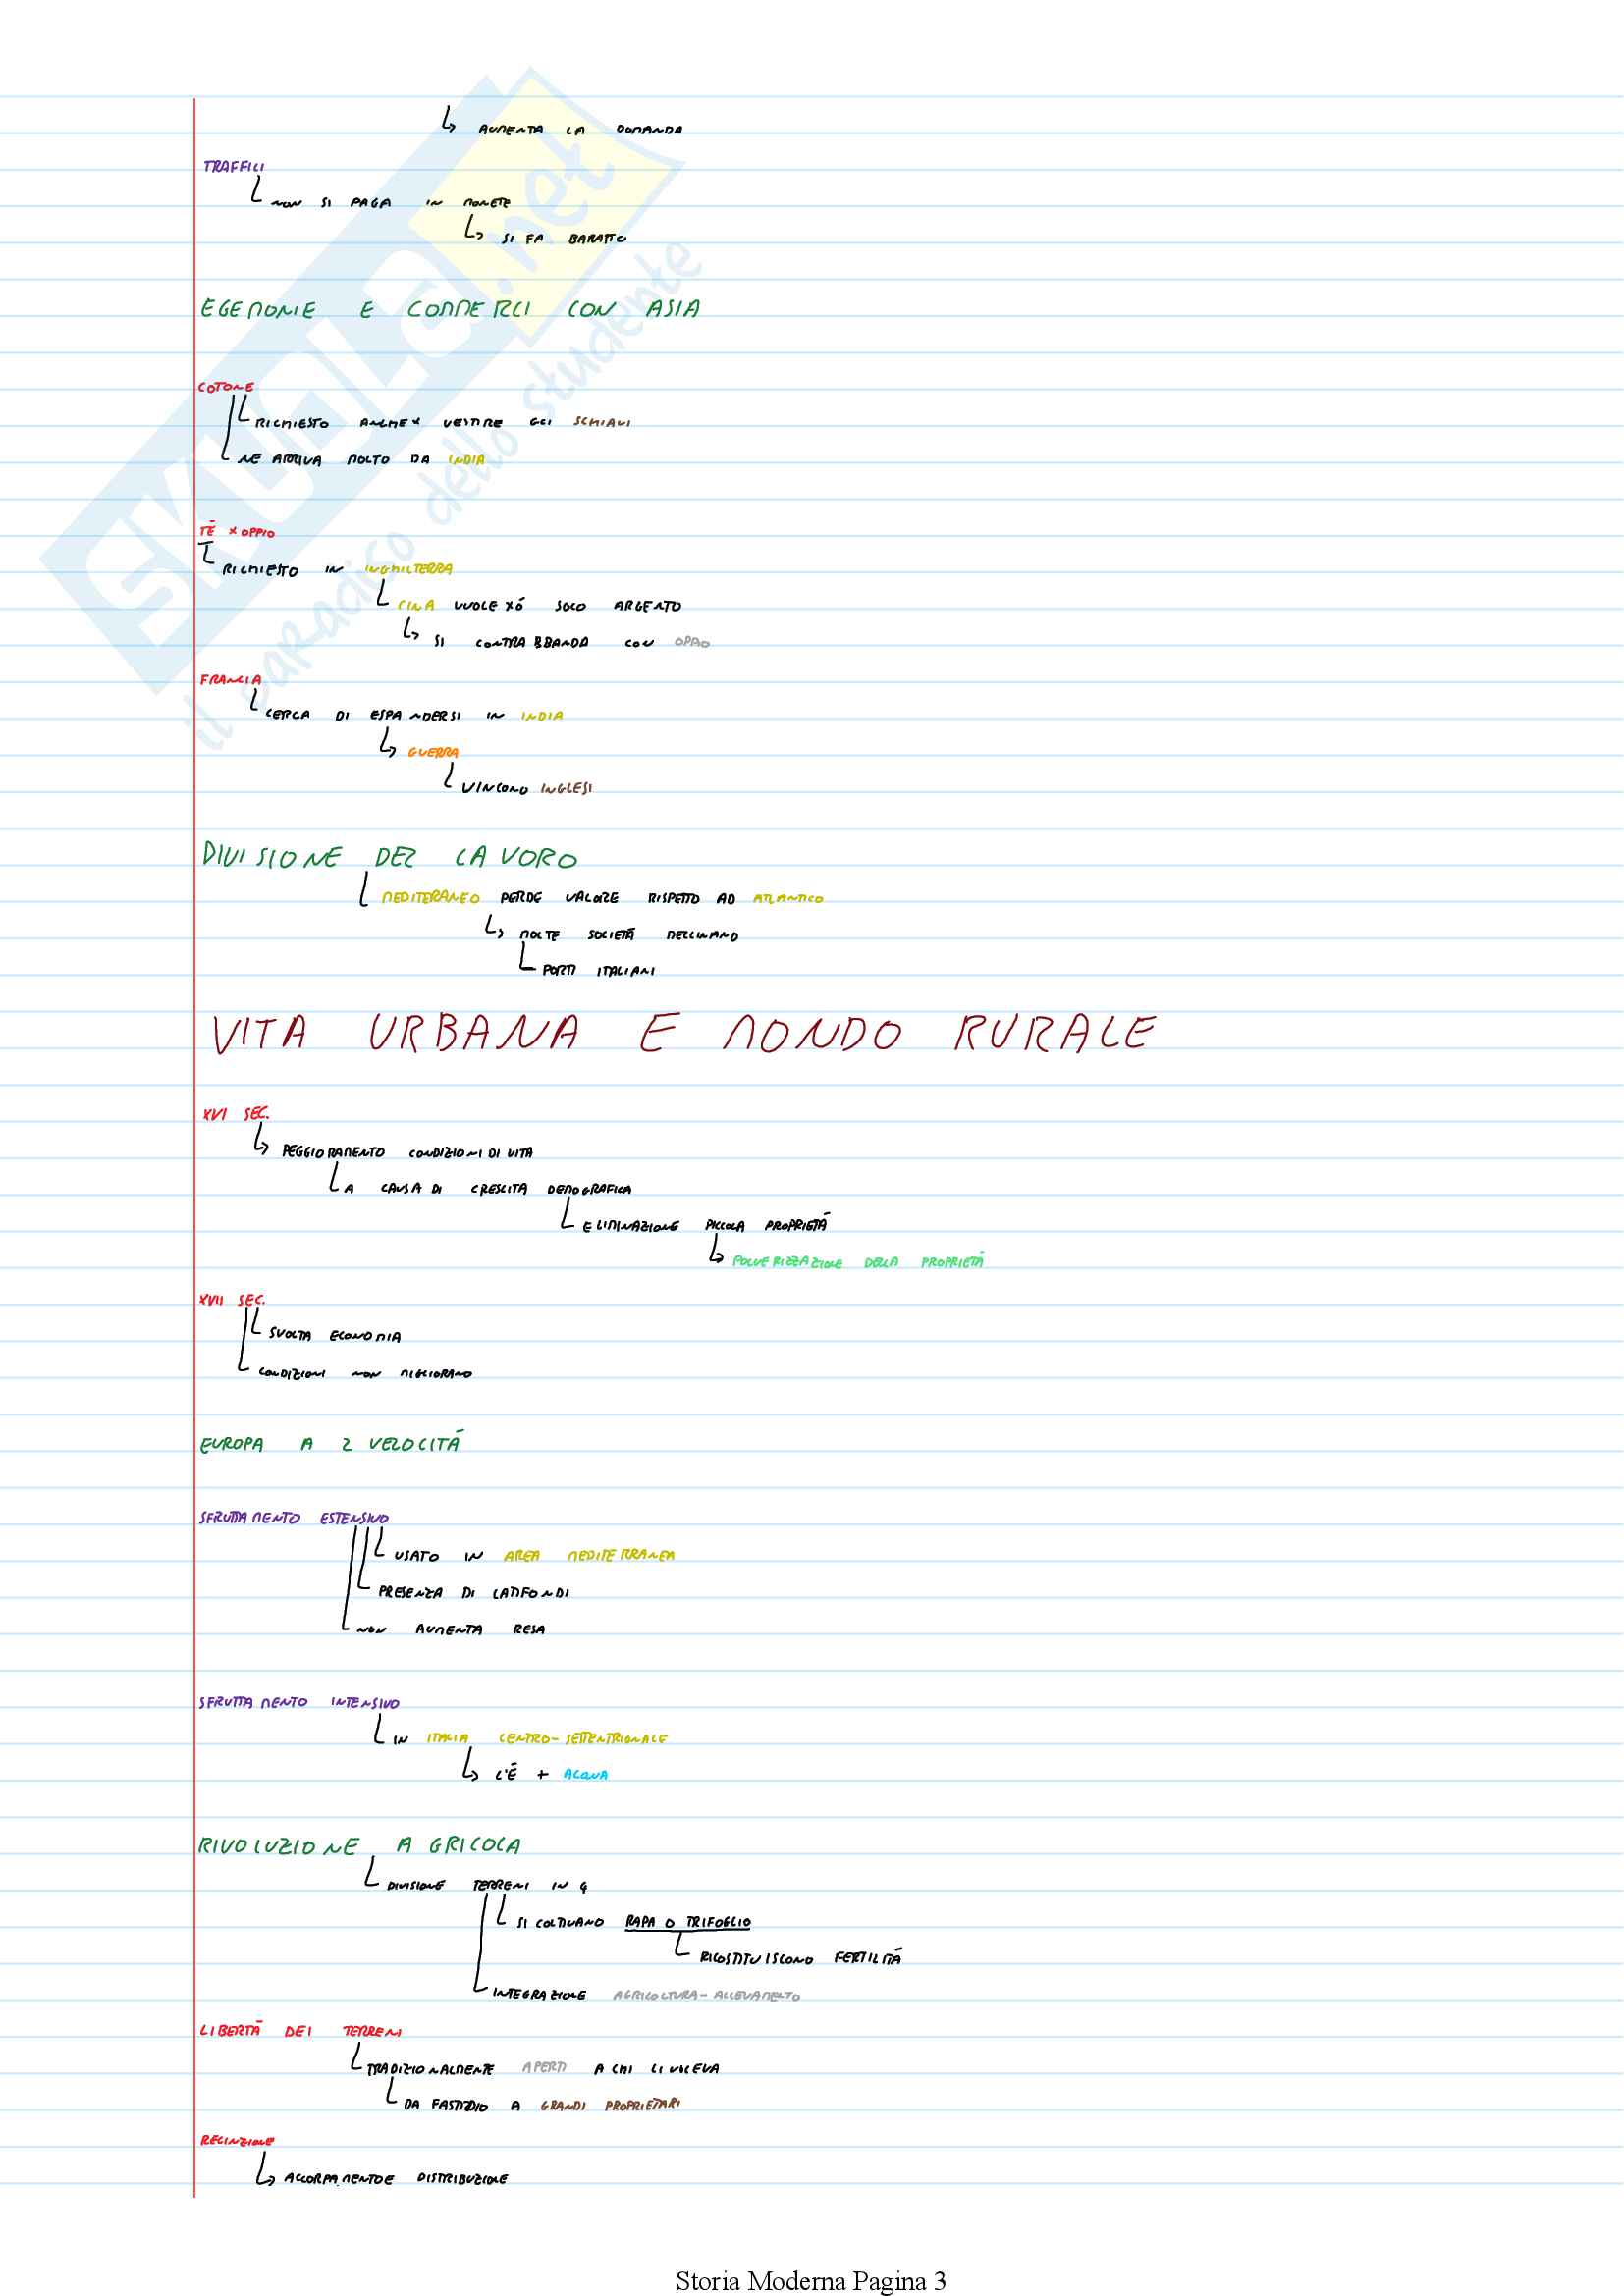 ↳ AUMENTA LA DOMANDA
TRAFFICI
NON SI PAGA IN MONETE
↳ SI FA BARATTO
EGEMONIE E COMMERCI CON ASIA
COTONE
RICHIESTO ANCHE X VESTIRE GLI SCHIAVI
NE ARRIVA MOLTO DA INDIA
TÈ X OPPIO
RICHIESTO IN INGHILTERRA
CINA VUOLE XÓ SOLO ARGENTO
↳ SI CONTRABBANDA CON OPPIO
FRANCIA
CERCA DI ESPANDERSI IN INDIA
↳ GUERRA
VINCONO INGLESI
DIVISIONE DEL LAVORO
MEDITERANEO PERDE VALORE RISPETTO AD ATLANTICO
↳ MOLTE SOCIETÀ DECLINANO
PORTI ITALIANI
VITA URBANA E MONDO RURALE
XVI SEC.
↳ PEGGIORAMENTO CONDIZIONI DI VITA
A CAUSA DI CRESCITA DEMOGRAFICA
ELIMINAZIONE PICCOLA PROPRIETÀ
↳ POLVERIZZAZIONE DELLA PROPRIETÀ
XVII SEC.
SVOLTA ECONOMIA
CONDIZIONI NON MIGLIORANO
EUROPA A 2 VELOCITÀ
SFRUTTAMENTO ESTENSIVO
USATO IN AREA MEDITERRANEA
PRESENZA DI LATIFONDI
NON AUMENTA RESA
SFRUTTAMENTO INTENSIVO
IN ITALIA CENTRO-SETTENTRIONALE
↳ C'È + ACQUA
RIVOLUZIONE AGRICOLA
DIVISIONE TERRENI IN 4
SI COLTIVANO RAPA O TRIFOGLIO
RICOSTITUISCONO FERTILITÀ
INTEGRAZIONE AGRICOLTURA-ALLEVAMENTO
LIBERTÀ DEI TERRENI
TRADIZIONALMENTE APERTI A CHI LI VOLEVA
DA FASTIDIO A GRANDI PROPRIETARI
RECINZIONE
↳ ACCORPAMENTO E DISTRIBUZIONE
Storia Moderna Pagina 3
SKUOLA.net
il paradiso dello studente